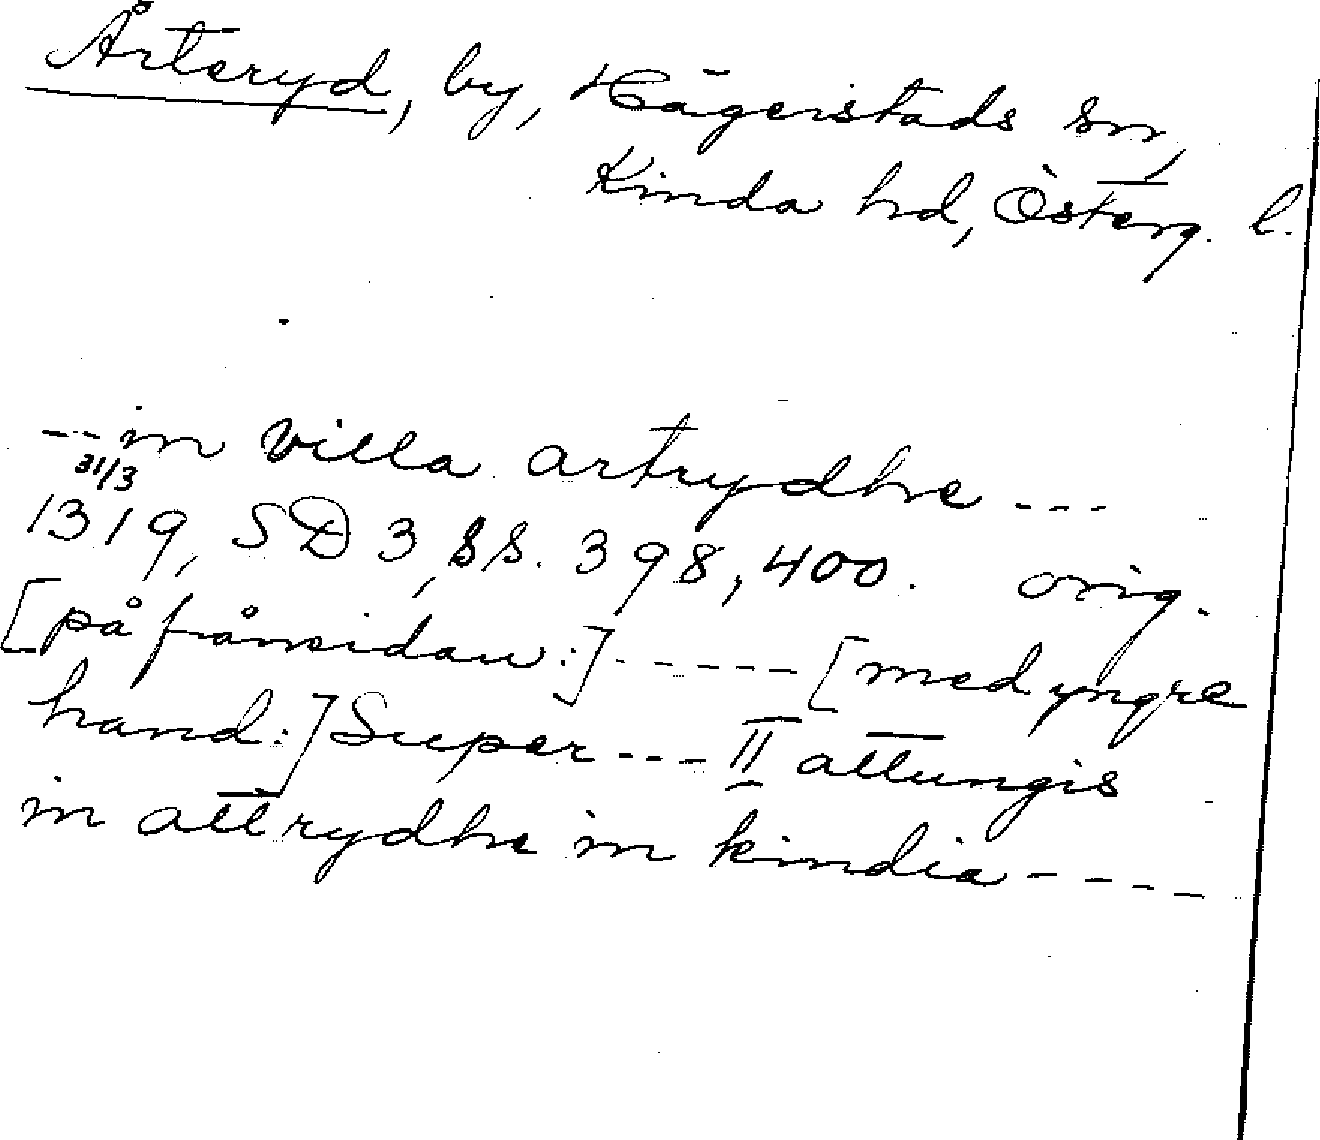 Årteryd, by, Hägerstads sn,
Kinda hd, Österg. l.
--in villa artrydhe ---
31/3
1319, SD 3, ss. 398, 400. orig.
[på frånsidan:] ----- [med yngre
hand:] Super --- II attungis
in attrydhe in kindia ----